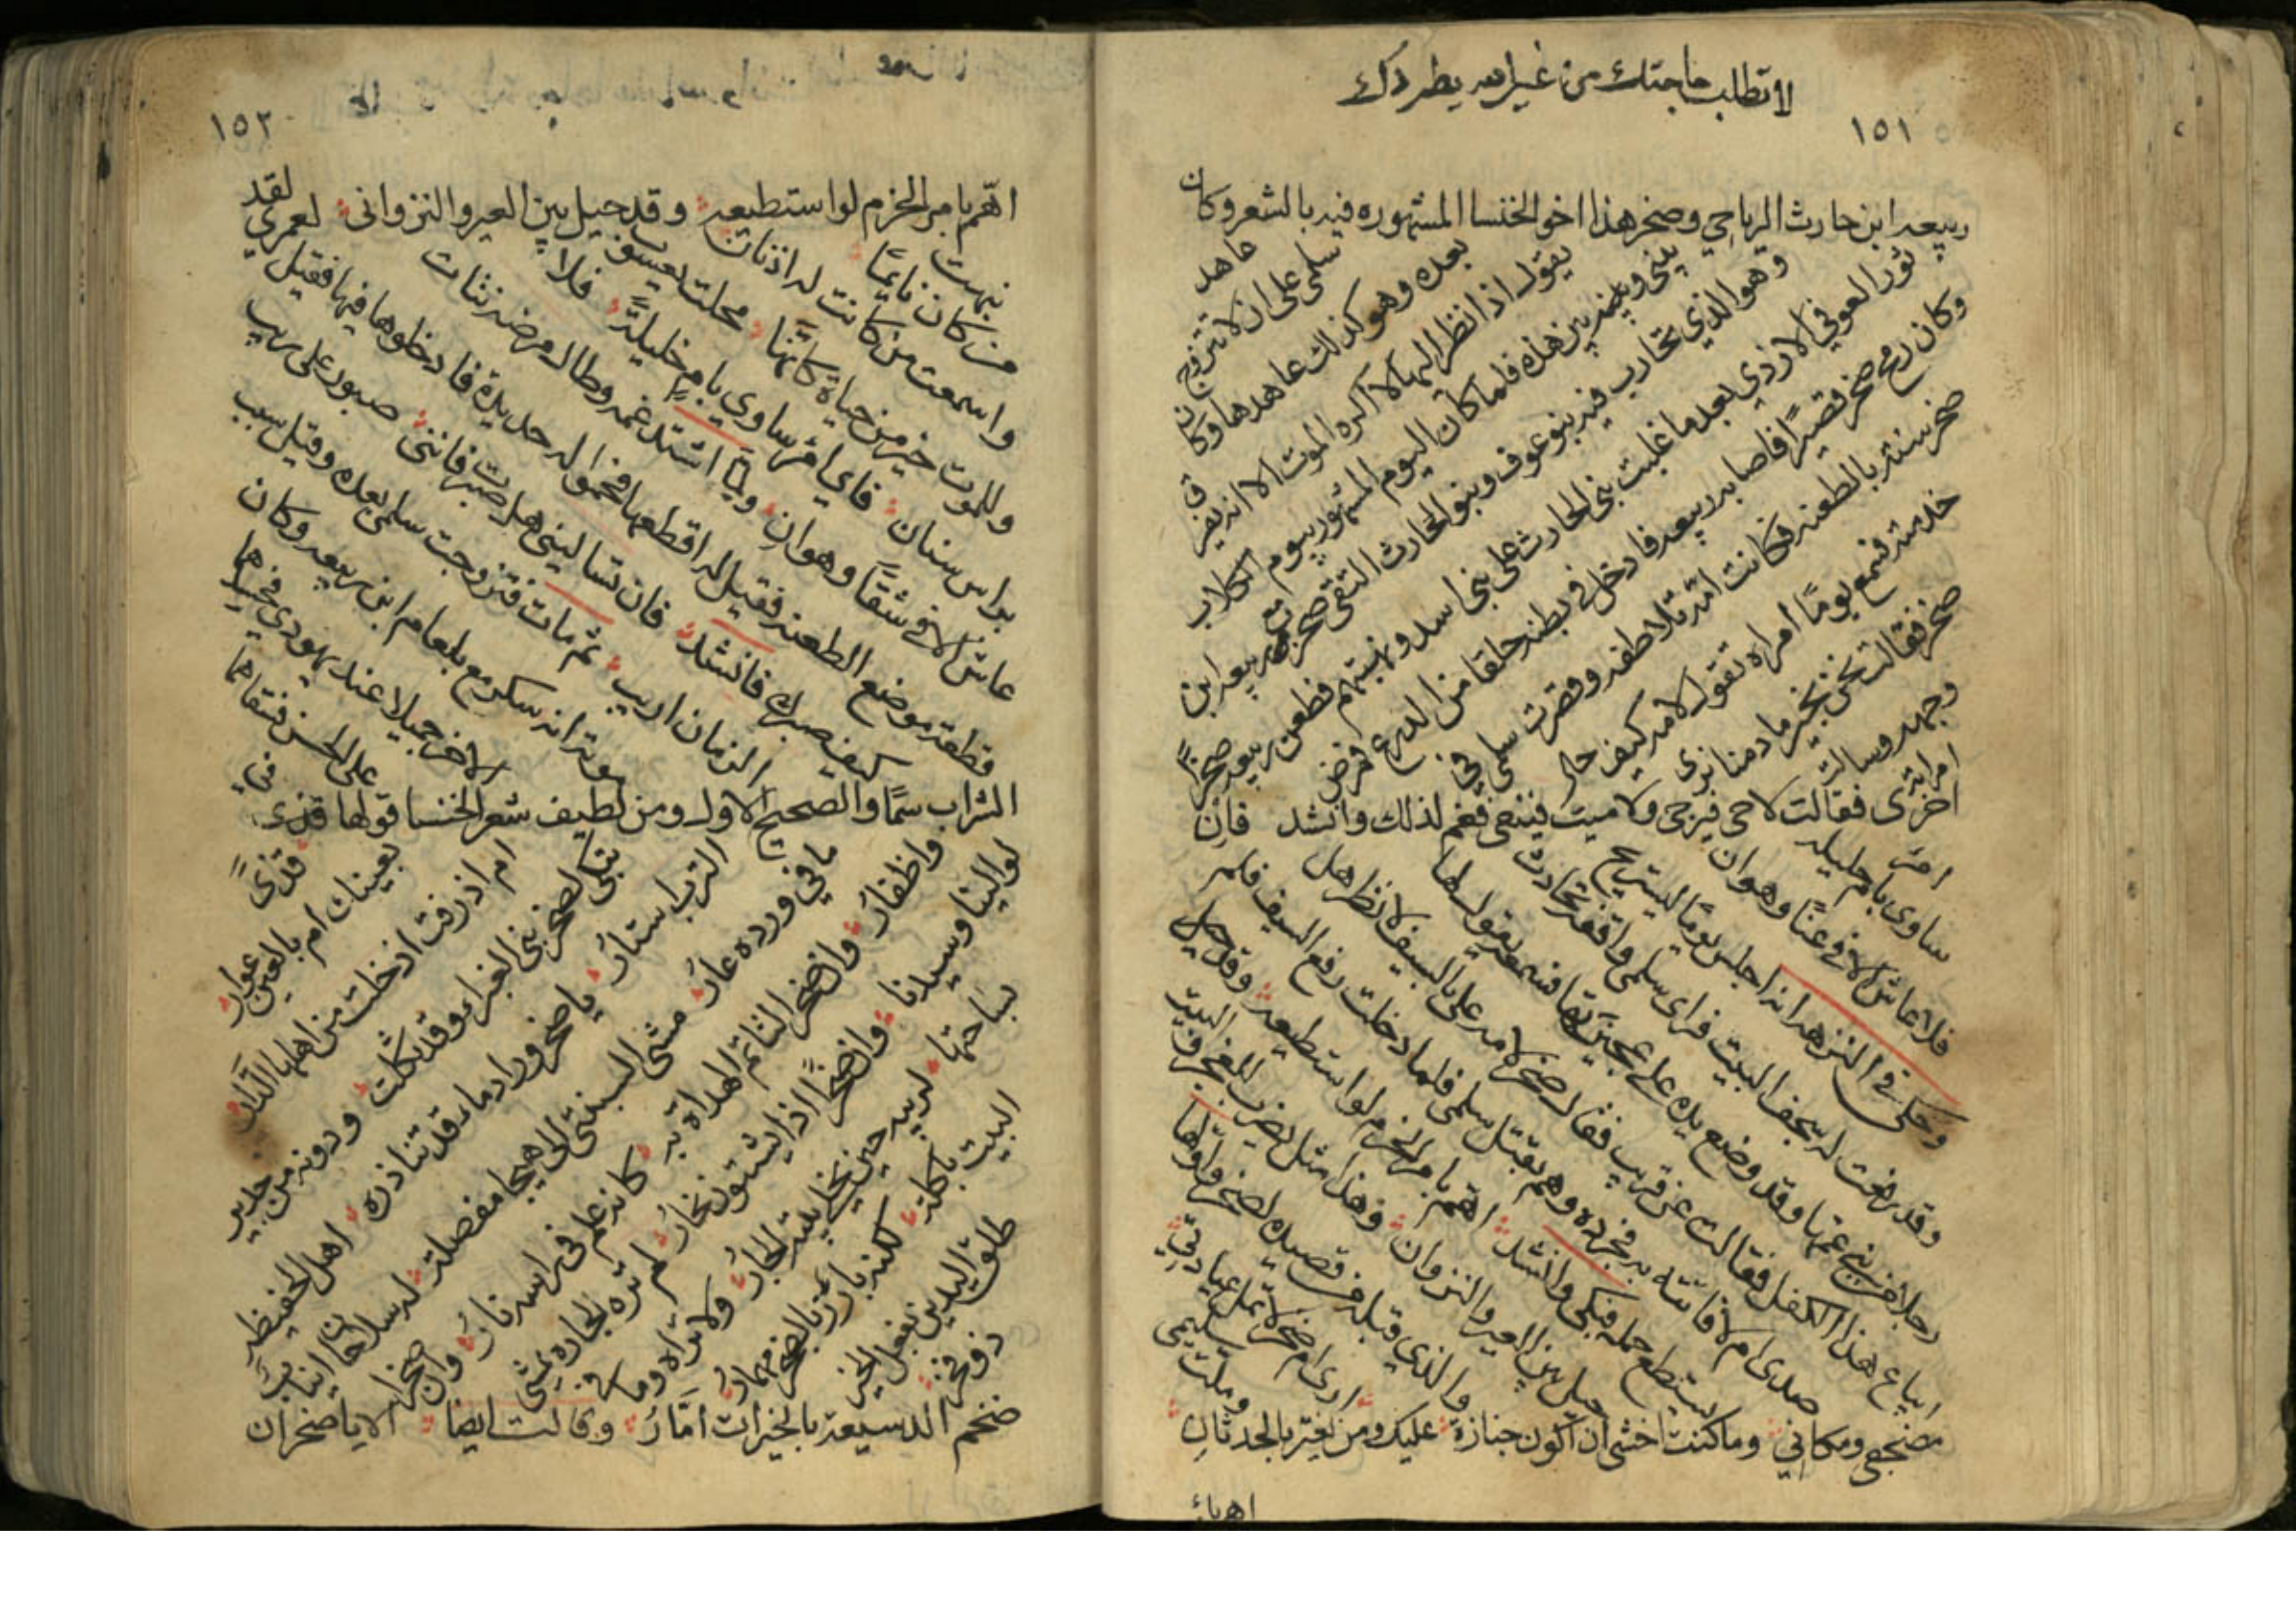 لا تطلب حاجتك من غير الله يطردك
١٥١
ربيعه ابن حارث الرياحي وصخر هذا اخو الخنسا المشهوره فيه بالشعر وكان
عاهد
سلمى على ان لا تتزوج
بعده وهو كذلك عاهدها وكان
يقول اذا نظر اليها لا اكره الموت الا انه يفرق
بيني وبين هذه فلما كان اليوم المشهور بيوم الكلاب
وهو الذي تحارب فيه بنو عوف وبنو الحارث التقى صخر مع ربيعه ابن
ثور العوفي الازدي بعد ما غلبت بني الحارث على بني اسد ونهبتهم فطعن ربيعه صخرًا
وكان رمح صخر قصيرًا فاصابه ربيعه فادخل في بطنه حلقا من الدرع فمرض
صخر سنة بالطعنه فكانت امه تلاطفه وقصرت سلمى في
خدمته فسمع يومًا امراه تقول لامه كيف حال
صخر فقالت نحن بخير ما دمنا نرى
وجهه وسالت
امراته
اخرى فقالت لا حي فيرجى ولا ميت فينعى فغم لذلك وانشد فان
امرء
ساوى بام حليله
فلا عاش الا في عنًا وهوان
وحكى في النزهه انه اجلس يومًا ليستريح
وقد رفعت له سجف البيت فراى سلمى واقفه تحادث
رجلا من بني عمها وقد وضع يده على عجيزتها فسمعه يقول لها
ايباع هذا الكفل فقالت عن قريب فقال صخر لامه علي بالسيف لانظر هل
صدى ام لا فاتته به فجرده وهم بقتل سلمى فلما دخلت رفع السيف فلم
يستطع حمله فبكى وانشد اهم بامر الحزم لو استطيعه وقد حيل
بين العير والنزوان وهذا مثل يضرب للعجز في البيت
والذي قبله من قصيده لصخر واولها
ارى ام صخر لا تمل عيادتي
وملت سليمى
مضجعي ومكاني وما كنت اخشى ان اكون جنازة عليك ومن يغتر بالحدثان
١٥٢
اهم بامر الحزم لو استطيعه وقد حيل بين العير والنزواني لعمري لقد
نبهت
من كان نايمًا
واسمعت من كانت له اذنان
وللموت خير من حياة كانها محلت يعسوب
براس سنان فاي امرء ساوى بام خليلة فلا
عاش الا في شقًا وهوان ولما اشتد غمه وطال مرضه نتات
قطعة موضع الطعنه فقيل له اقطعها فحموا له حديدة فادخلوها فيها فقيل
كيف صبرك فانشد فان تساليني هل صبرت فانني صبور على ريب
الزمان اريب ثم مات فتزوجت سلمى بعده وقيل سبب
موته انه سكر مع بلعام ابن ربيعه وكان
الاخر جميلا عند يهودي فحسدهما
على الحسن فسقاهما
في
الشراب سمًا والصحيح الاول ومن لطيف شعر الخنسا قولها قذى
قذًى
بعينك ام بالعين عوار
ام اذرفت اذ خلت من اهلها الدار
تبكي لصخر بني الغبراء وقد ثكلت ودونه من جديد
الترب استار يا صخر وراد ماء قد تناذره اهل الحفيظه
ما في ورده عار مشى السبنتى الى هيجا مفصلة له سلاحان انياب
واظفار وان صخر لتاتم الهداة به كانه علم في راسه نار وان صخرا
لوالينا وسيدنا وان صخرًا اذا يشتو نحار لم تره الجاره يمشي
بساحتها لريبه حين يخلي بيته الجار ولا تراه وما في
البيت ياكله لكنه بارز بالصحن مهمار
طلق اليدين بفعل الخير
ذو فجر
ضخم الدسيعه بالخيرات امار وقالت ايضا الا يا صخر ان